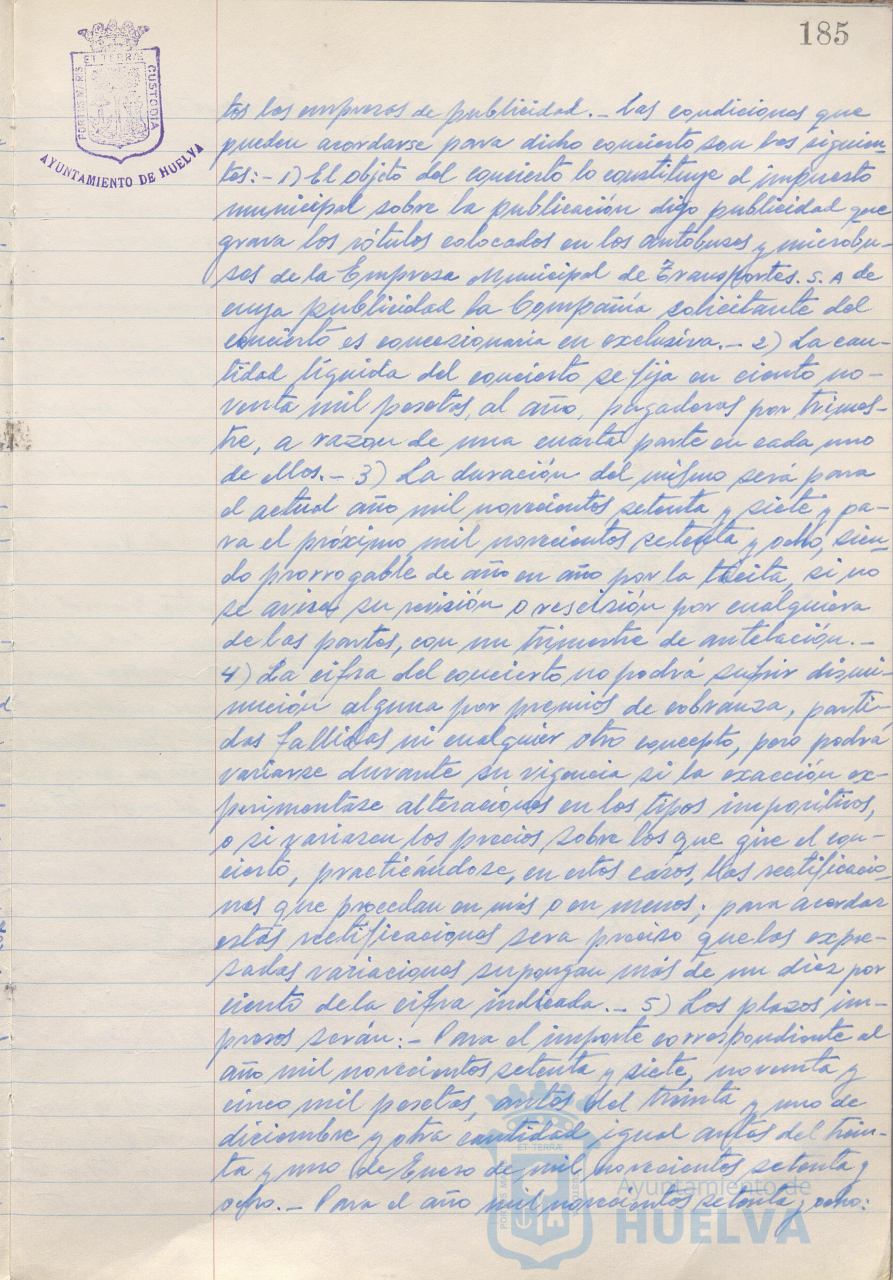 185
PORTUS MARIS
ET TERRÆ
CUSTODIA
AYUNTAMIENTO DE HUELVA
tos las empresas de publicidad.- Las condiciones que
pueden acordarse para dicho concierto son las siguien-
tes:- 1) El objeto del concierto lo constituye el impuesto
municipal sobre la publicación digo publicidad que
grava los rótulos colocados en los autobuses y microbu-
ses de la Empresa Municipal de Transportes. S.A de
cuya publicidad la Compañía solicitante del
concierto es concesionaria en exclusiva.- 2) La can-
tidad líquida del concierto se fija en ciento no-
venta mil pesetas, al año, pagaderas por trimes-
tre, a razon de una cuarta parte en cada uno
de ellos.- 3) La duración del mismo será para
el actual año mil novecientos setenta y siete y pa-
ra el próximo mil novecientos setenta y ocho, sien-
do prorrogable de año en año por la tácita, si no
se avisa su revisión o rescisión por cualquiera
de las partes, con un trimestre de antelación.-
4) La cifra del concierto no podrá sufrir dismi-
nución alguna por premios de cobranza, parti-
das fallidas ni cualquier otro concepto, pero podrá
variarse durante su vigencia si la exacción ex-
perimentase alteraciones en los tipos impositivos,
o si variasen los precios sobre los que gire el con-
cierto, practicándose, en estos casos, las rectificacio-
nes que procedan en más o en menos; para acordar
estas rectificaciones sera preciso que las expre-
sadas variaciones supongan más de un diez por
ciento de la cifra indicada.- 5) Los plazos im-
presos serán:- Para el importe correspondiente al
año mil novecientos setenta y siete, noventa y
cinco mil pesetas, antes del treinta y uno de
diciembre y otra cantidad igual antes del trein-
ta y uno de Enero de mil novecientos setenta y
ocho.- Para el año mil novecientos setenta y ocho:
ET TERRÆ
Ayuntamiento de
HUELVA